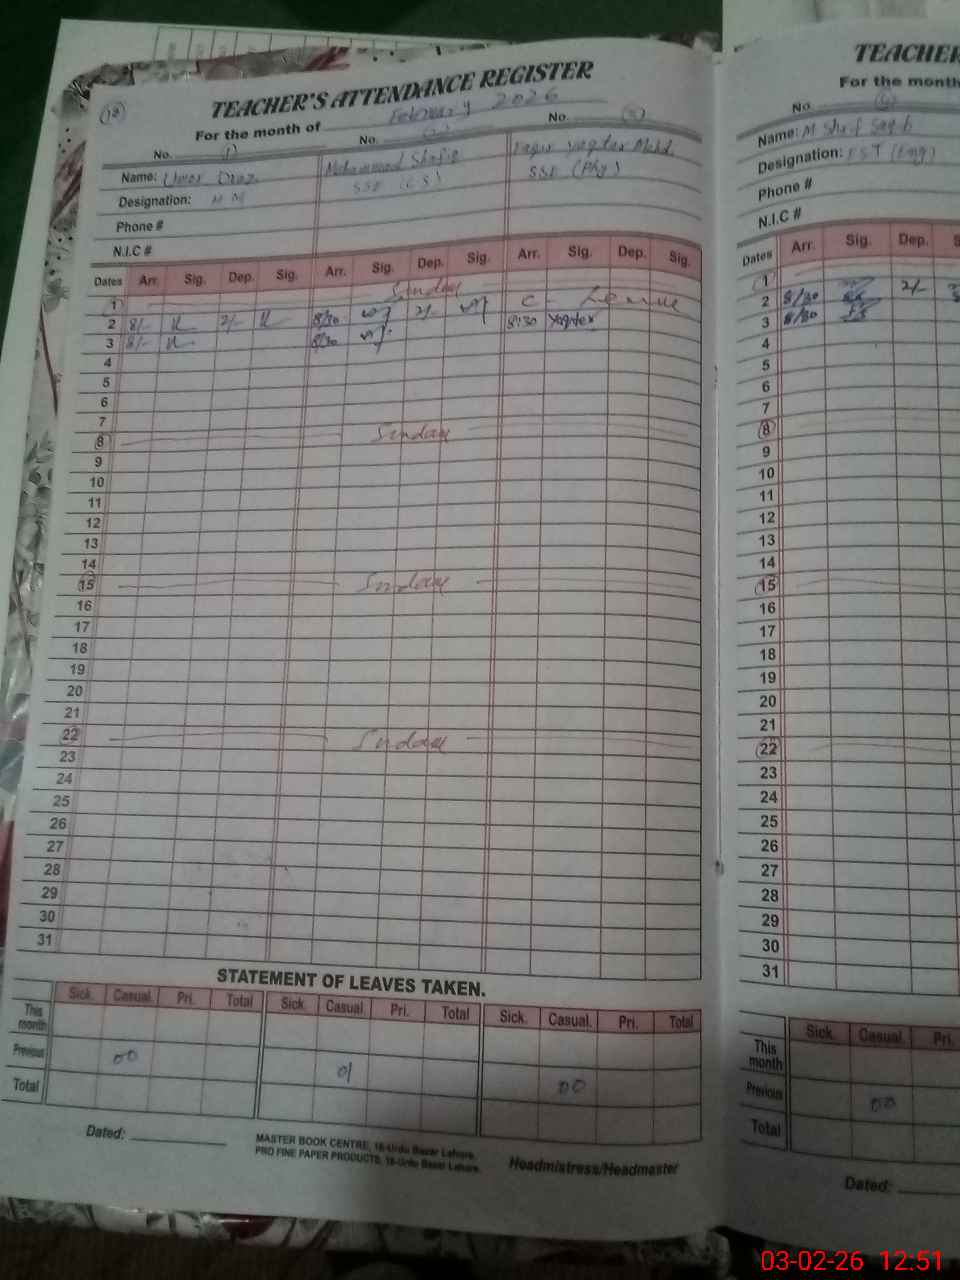 TEACHER'S ATTENDANCE REGISTER
18
For the month of February 2026
No. (1) No. No. (3)
Name: Umar Draz Mohammad Shafiq Faqir Yaqdar Mohd.
Designation: SSE (CS) SSE (Phy)
Phone #
N.I.C #
Dates Arr. Sig. Dep. Sig. Arr. Sig. Dep. Sig. Arr. Sig. Dep. Sig.
1 Sunday
2 8/- 2/- 8/30 2/- C- Leave
3 8/- 8/30 8:30
4
5
6
7
8 Sunday
9
10
11
12
13
14
15 Sunday
16
17
18
19
20
21
22 Sunday
23
24
25
26
27
28
29
30
31
STATEMENT OF LEAVES TAKEN.
Sick. Casual. Pri. Total Sick. Casual. Pri. Total Sick. Casual. Pri. Total
This month
Previous 00 01 00
Total
Dated:
MASTER BOOK CENTRE, 16-Urdu Bazar Lahore.
PRO FINE PAPER PRODUCTS, 16-Urdu Bazar Lahore.
Headmistress/Headmaster
TEACHER
For the month
No. (4)
Name: M Sharif Saqib
Designation: EST (Eng)
Phone #
N.I.C #
Dates Arr. Sig. Dep. S
1
2 8/30 2/-
3 8/30
4
5
6
7
8
9
10
11
12
13
14
15
16
17
18
19
20
21
22
23
24
25
26
27
28
29
30
31
Sick. Casual. Pri.
This month
Previous 00
Total
Dated:
03-02-26 12:51